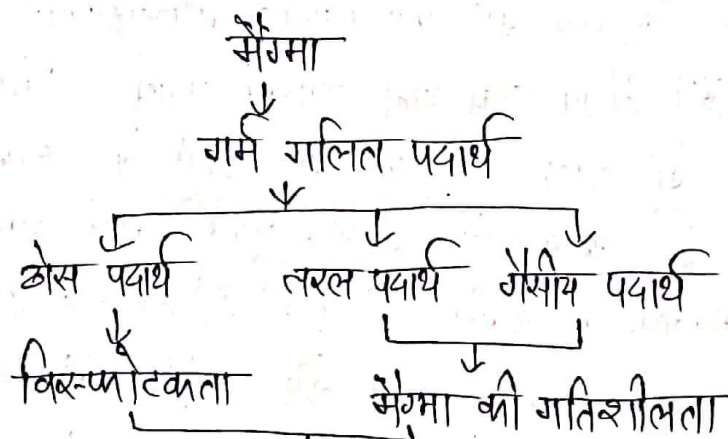 मैग्मा
गर्म गलित पदार्थ
ठोस पदार्थ तरल पदार्थ गैसीय पदार्थ
विस्फोटकता मैग्मा की गतिशीलता